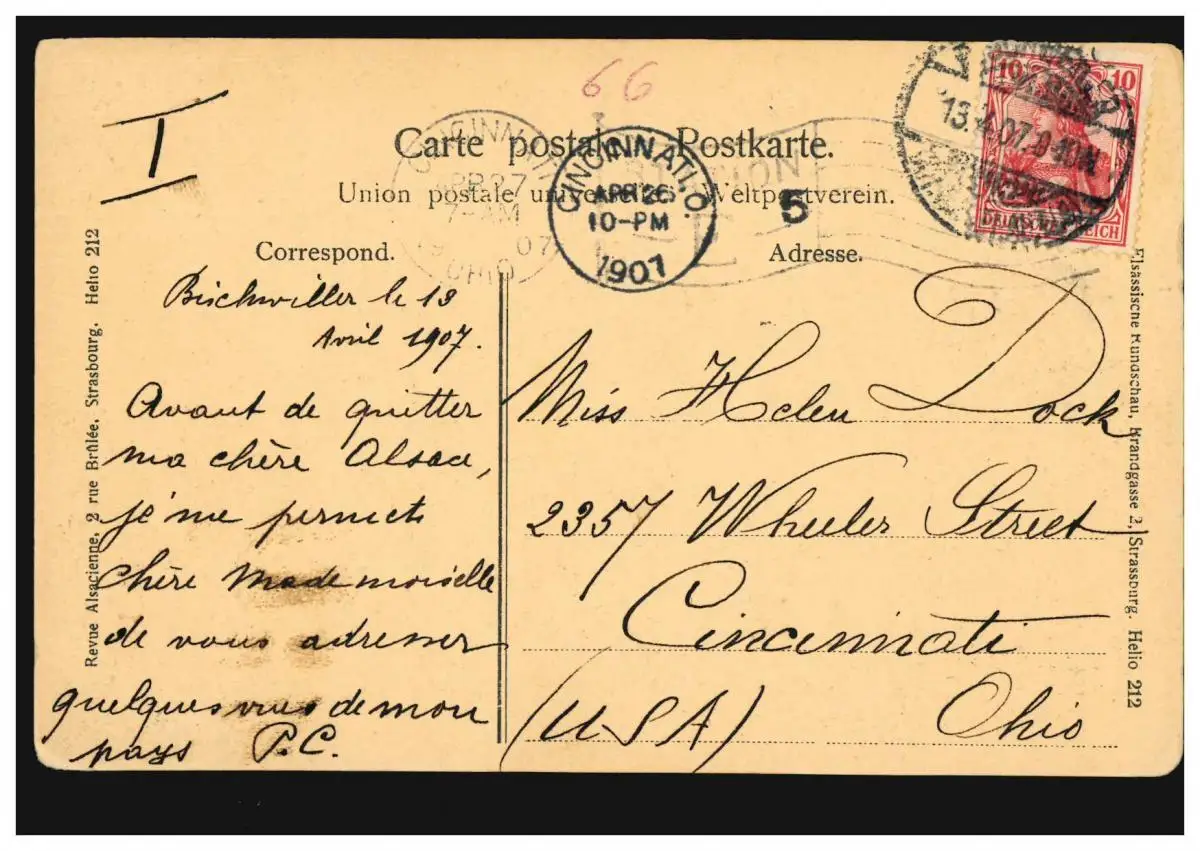 66
I
Carte postale Postkarte.
Union postale universelle Weltpostverein.
CINCINNATI, O.
APR 26
10-PM
1907
5
APR 27
7-AM
OHIO
10 10
13.4.07.
DEUTSCHES REICH
Correspond.
Adresse.
Bischwiller le 13
Avril 1907.
Avant de quitter
ma chère Alsace,
je me permets
chère Mademoiselle
de vous adresser
quelques vues de mon
pays P.C.
Miss Helen Dock
2357 Wheeler Street
Cincinnati
(USA) Ohio
Revue Alsacienne, 2 rue Brûlée, Strasbourg. Helio 212
Elsässische Rundschau, Brandgasse 2, Strassburg. Helio 212